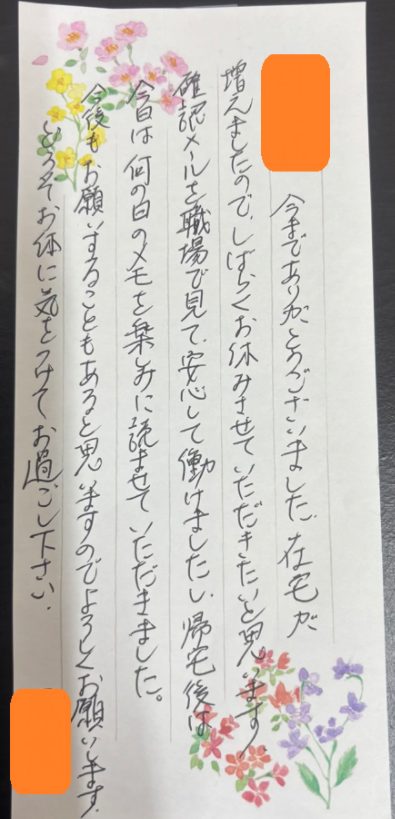 今までありがとうございました。在宅が
増えましたので、しばらくお休みさせていただきたいと思います。
確認メールを職場で見て、安心して働けましたし、帰宅後は
今日は何の日のメモを楽しみに読ませていただきました。
今後もお願いすることもあると思いますのでよろしくお願いします。
どうぞお体に気をつけてお過ごし下さい。